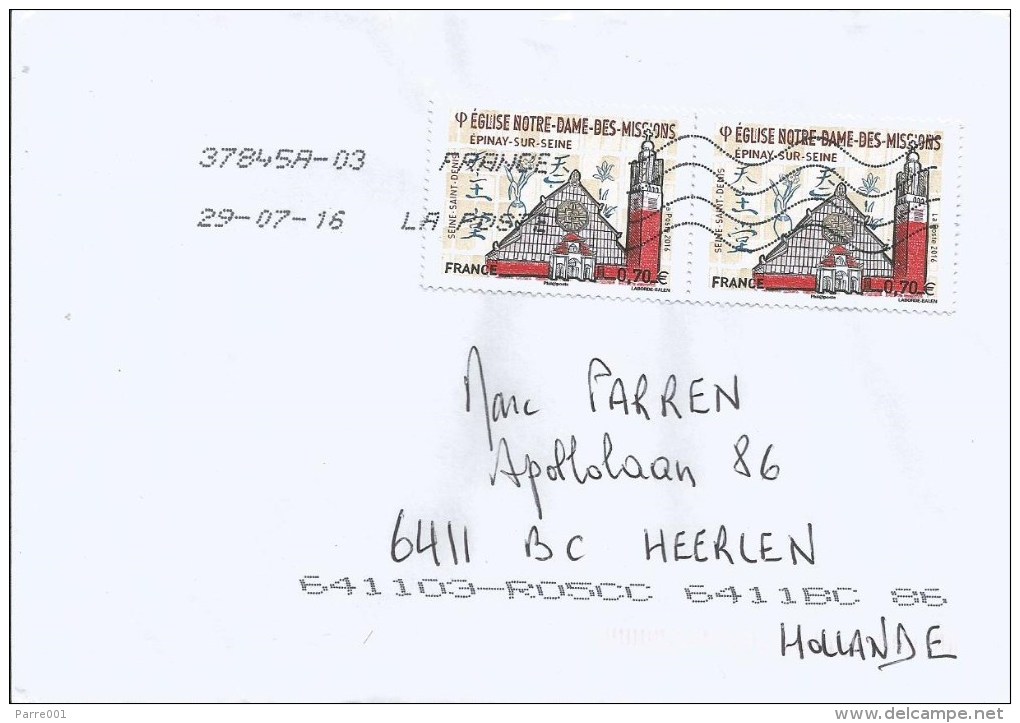 φ ÉGLISE NOTRE-DAME-DES-MISSIONS
ÉPINAY-SUR-SEINE
SEINE-SAINT-DENIS
天主堂
La Poste 2016
FRANCE
0,70 €
Phil@poste
LABORDE-BALEN
φ ÉGLISE NOTRE-DAME-DES-MISSIONS
ÉPINAY-SUR-SEINE
SEINE-SAINT-DENIS
天主堂
La Poste 2016
FRANCE
0,70 €
Phil@poste
LABORDE-BALEN
37845A-03 FRANCE
29-07-16 LA POSTE
Marc PARREN
Apollolaan 86
6411 BC HEERLEN
641103-ROSCC 6411BC 86
HOLLANDE
Parre001
delcampe.net